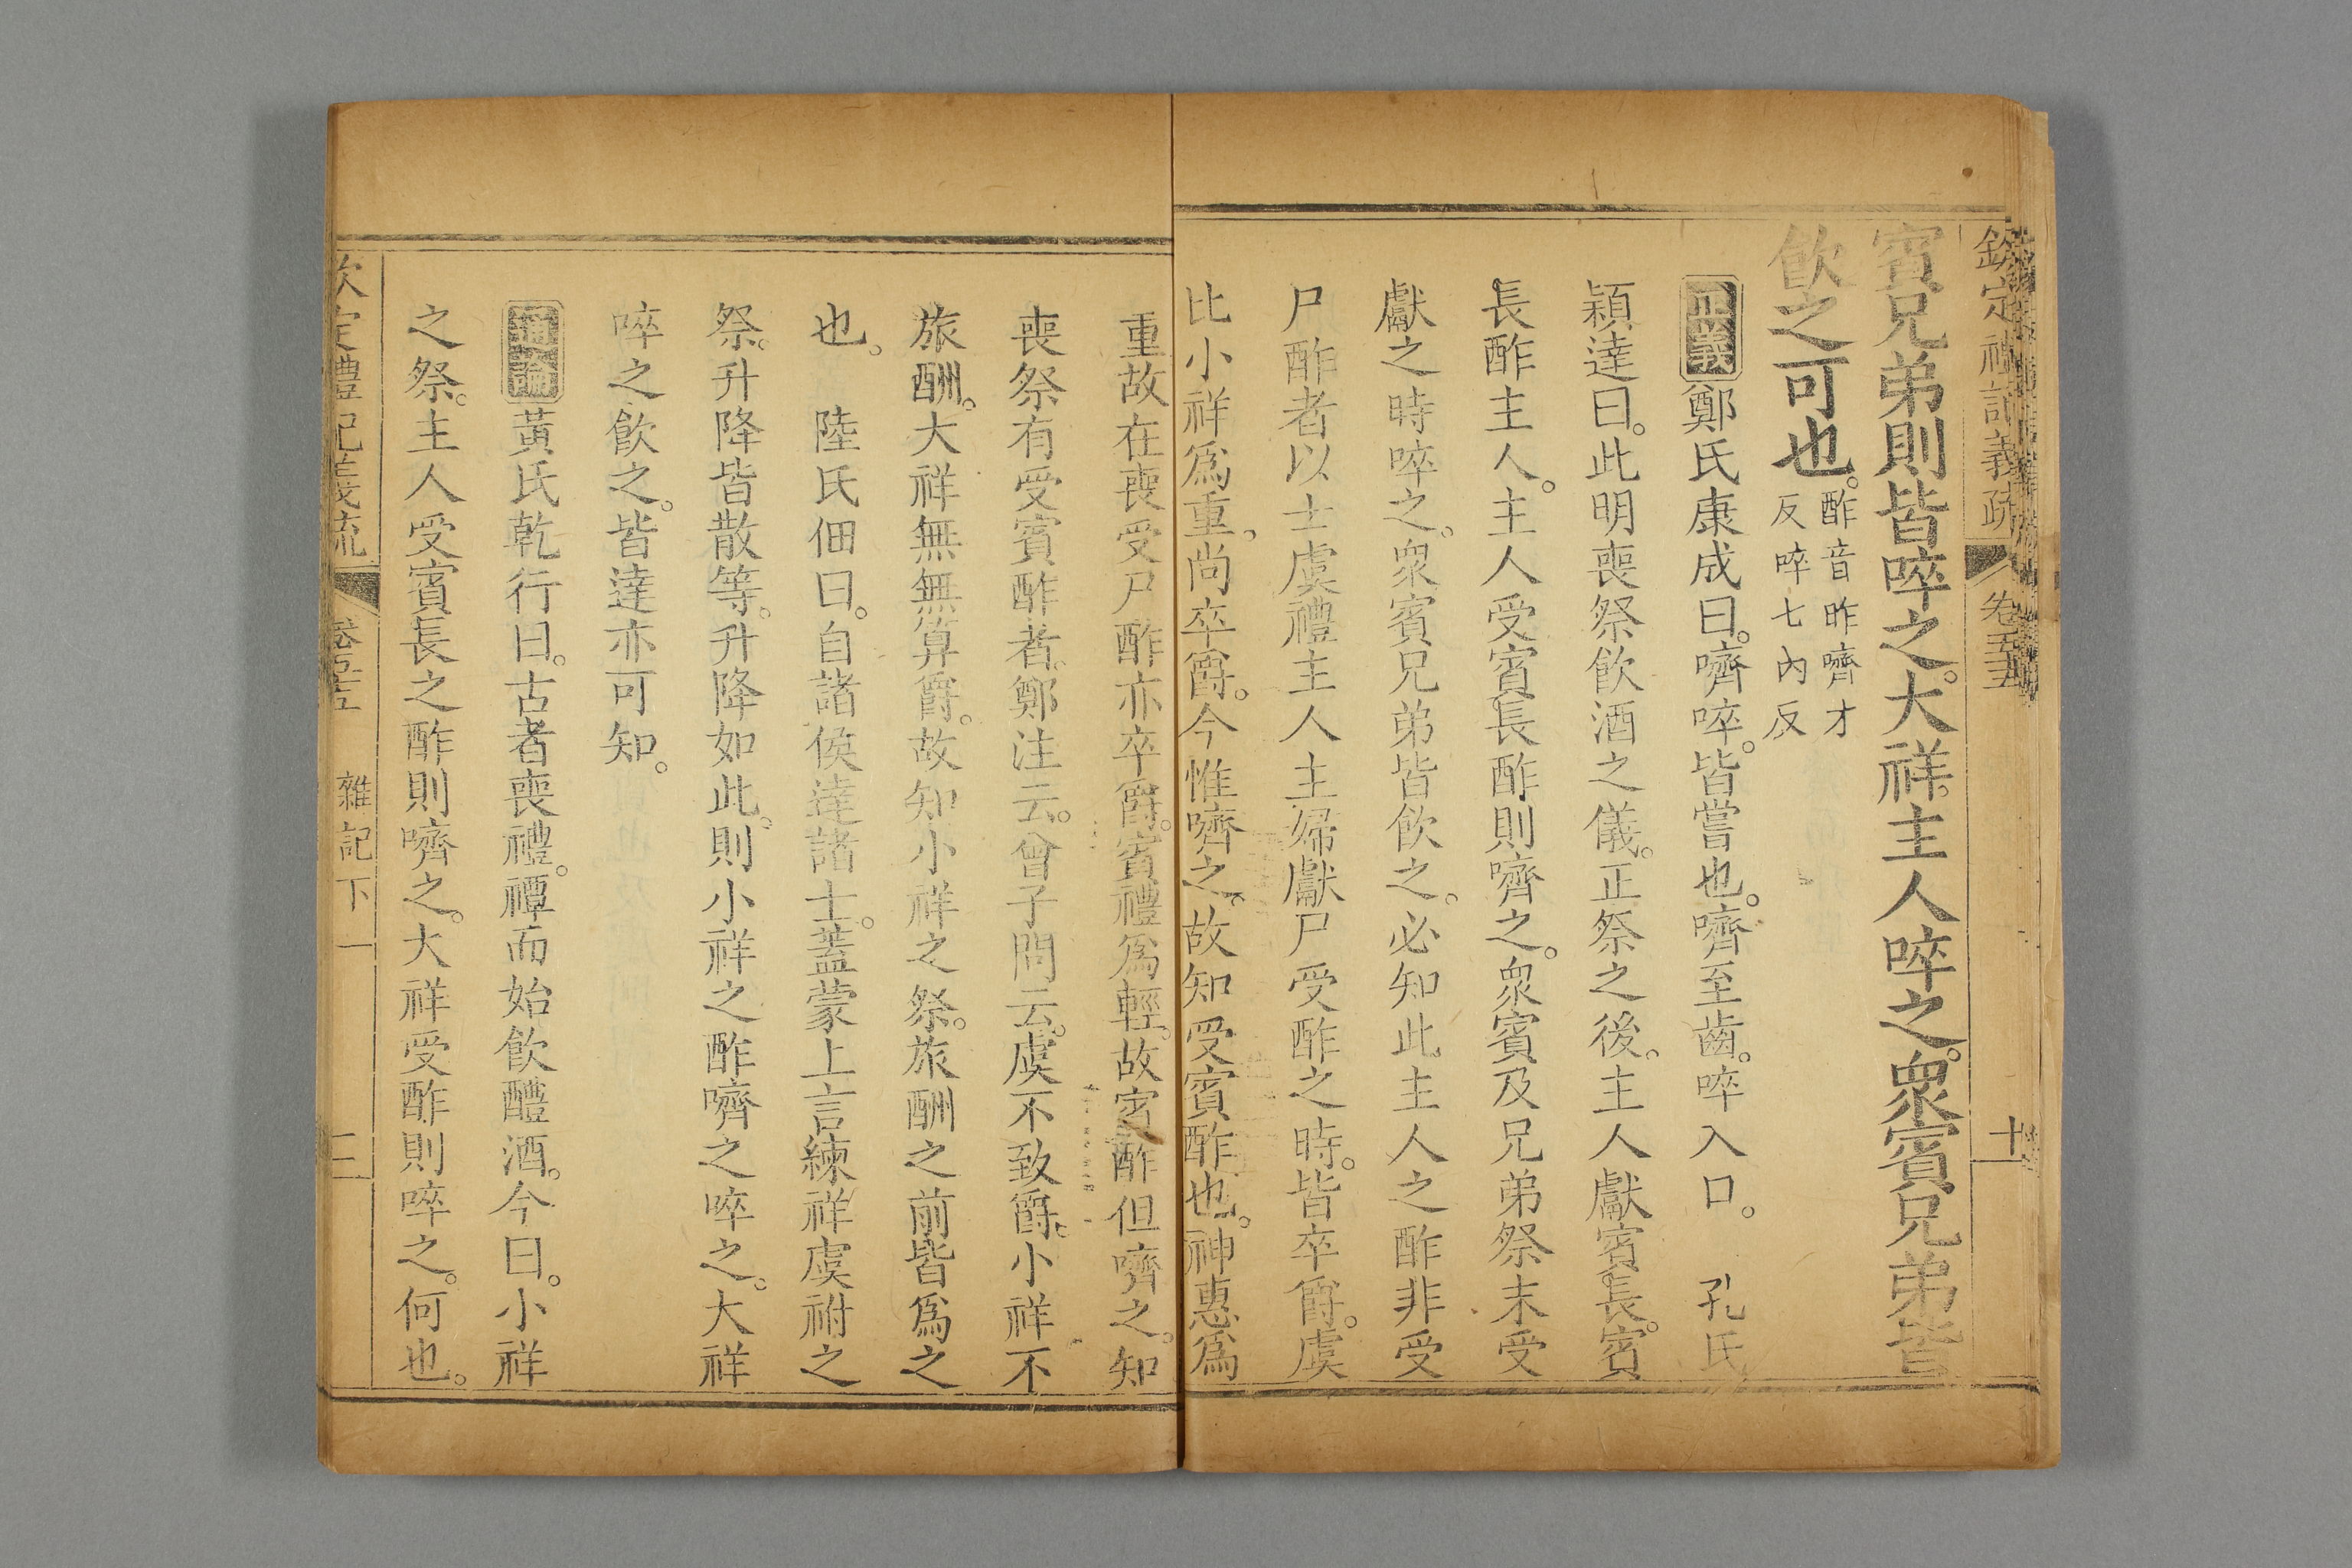 欽定禮記義疏 卷五十五 十
賓兄弟則皆啐之。大祥。主人啐之。衆賓兄弟皆
飲之可也。酢音昨嚌才
反啐七內反
正義鄭氏康成曰。嚌啐。皆嘗也。嚌至齒。啐入口。 孔氏
穎達曰。此明喪祭飲酒之儀。正祭之後。主人獻賓長。賓
長酢主人。主人受賓長酢則嚌之。衆賓及兄弟祭末受
獻之時啐之。衆賓兄弟皆飲之。必知此主人之酢非受
尸酢者以士虞禮主人主婦獻尸受酢之時。皆卒爵。虞
比小祥爲重。尚卒爵。今惟嚌之。故知受賓酢也。神惠爲
重故在喪受尸酢亦卒爵。賓禮爲輕。故賓酢但嚌之。知
喪祭有受賓酢者。鄭注云。曾子問云。虞不致爵。小祥不
旅酬。大祥無無算爵。故知小祥之祭。旅酬之前皆爲之
也。 陸氏佃曰。自諸侯達諸士。蓋蒙上言練祥虞祔之
祭。升降皆散等。升降如此。則小祥之酢嚌之啐之。大祥
啐之飲之。皆達亦可知。
通論黃氏乾行曰。古者喪禮。禫而始飲醴酒。今曰。小祥
之祭。主人受賓長之酢則嚌之。大祥受酢則啐之。何也。
欽定禮記義疏 卷五十五 雜記下一 三